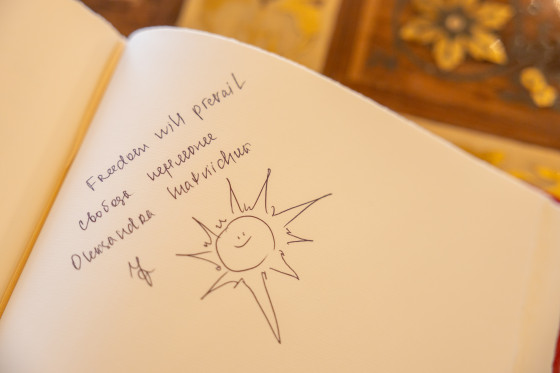 Freedom will prevail
свобода переможе
Oleksandra Matviichuk